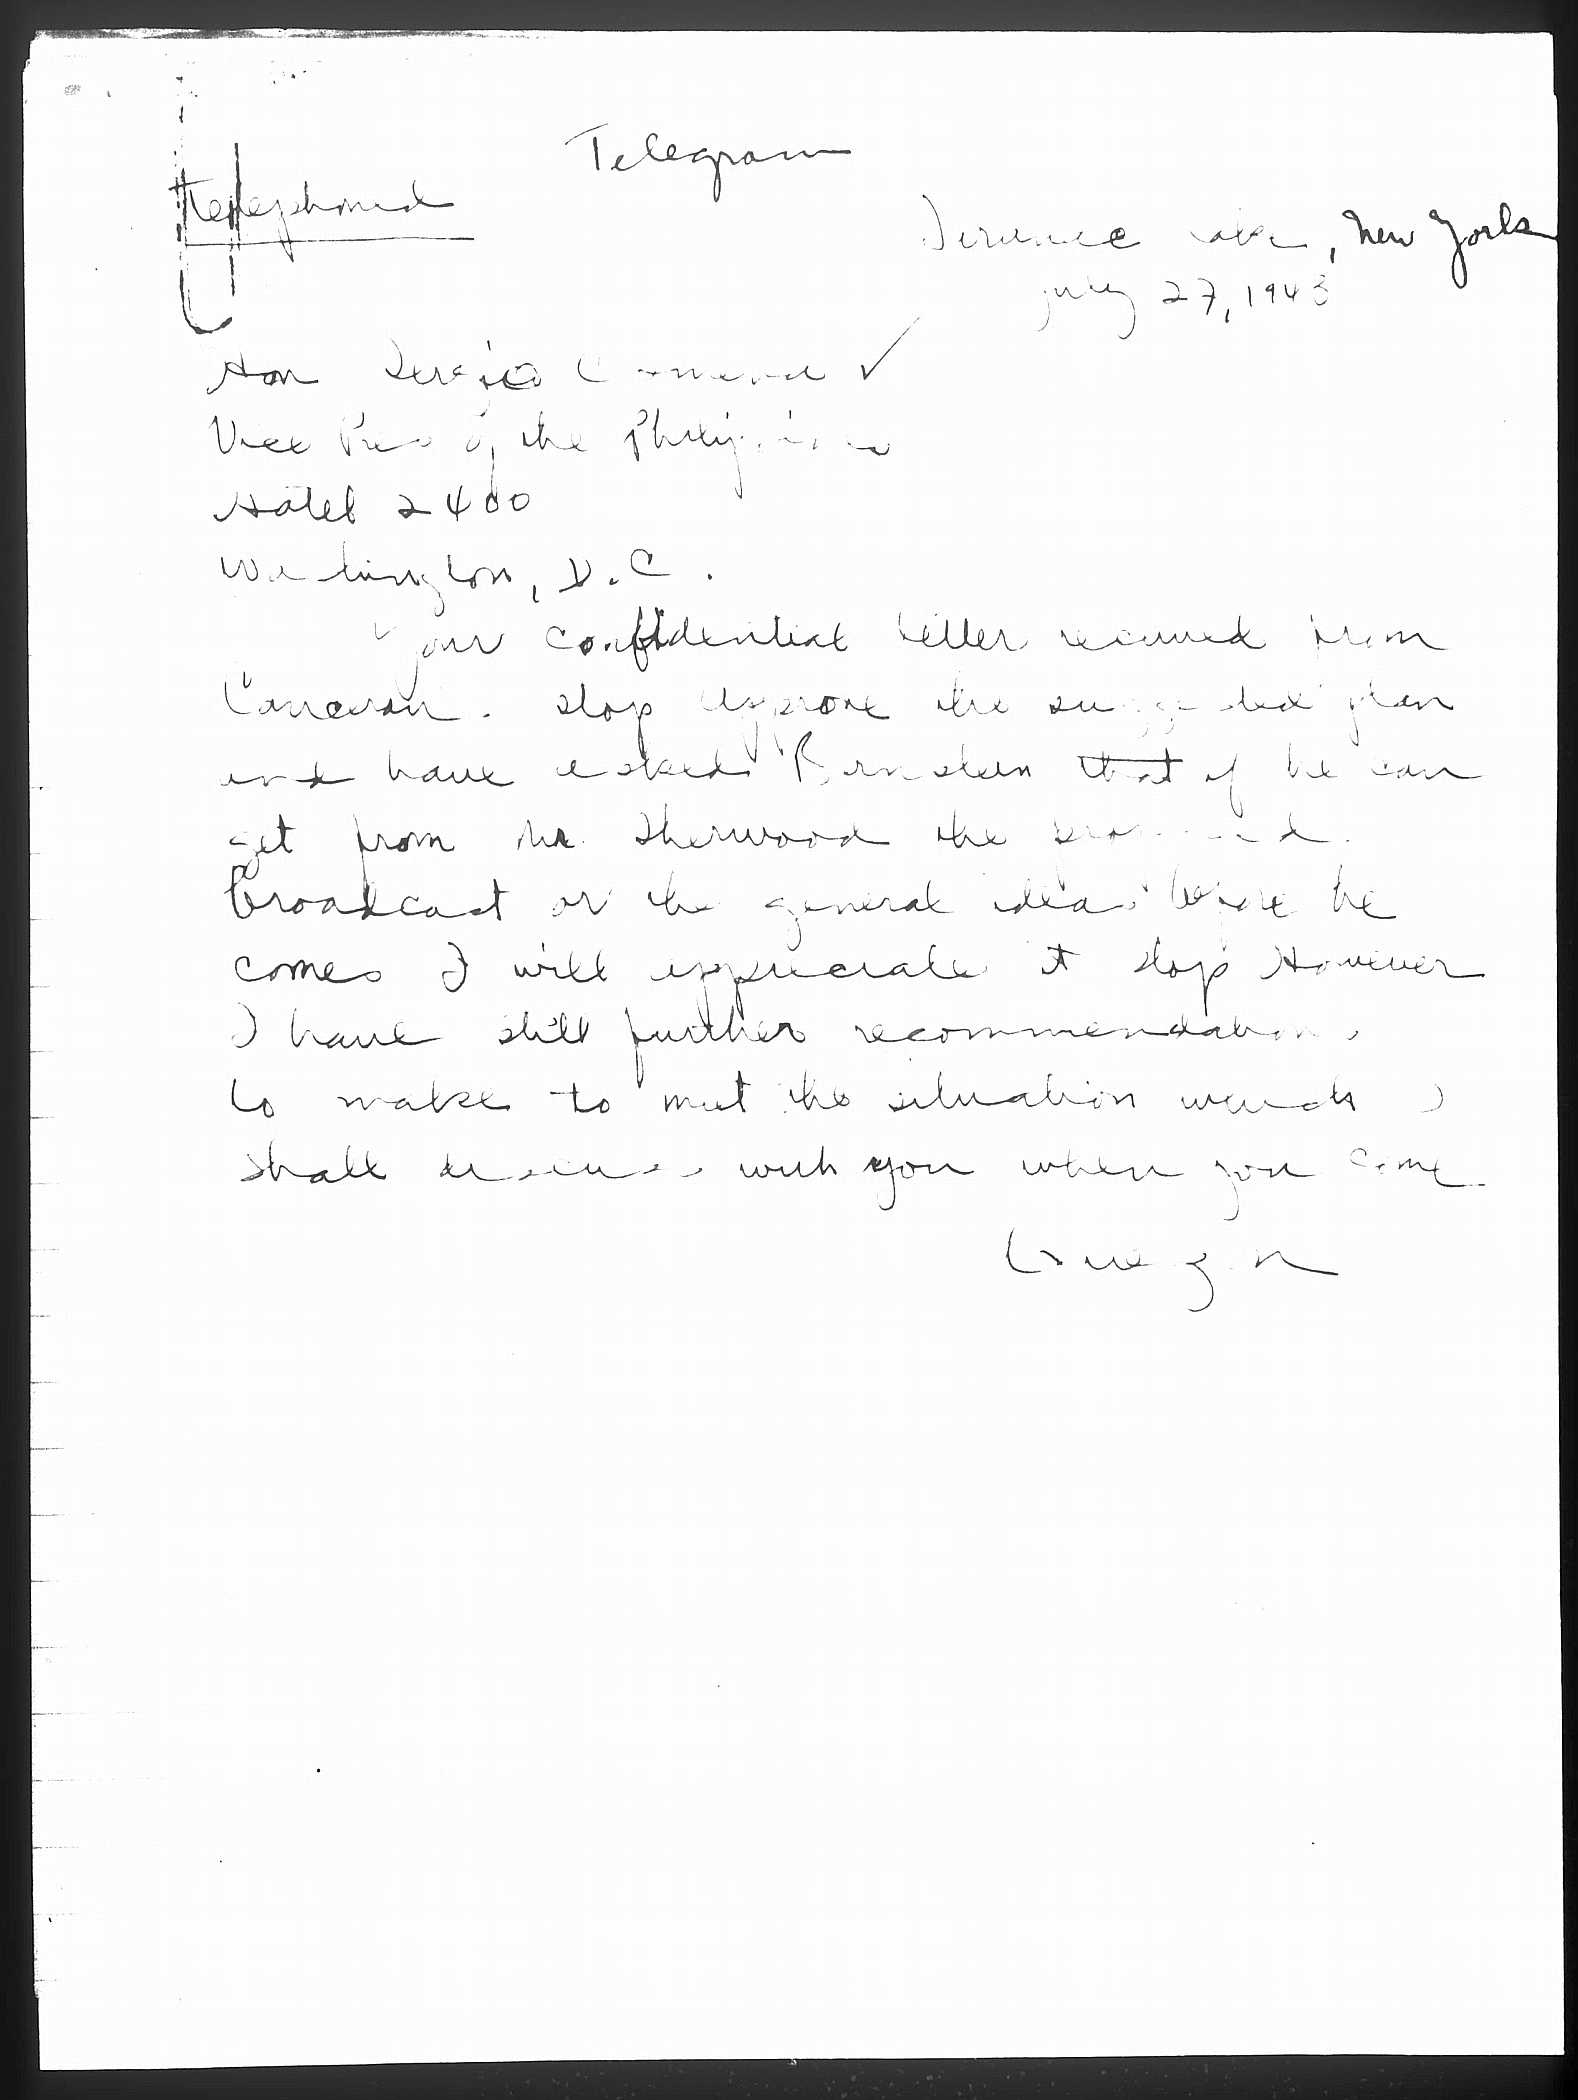 Telegram
Telephoned
Saranac Lake, New York
July 27, 1943
Hon Sergio Osmena ✓
Vice Pres of the Philippines
Hotel 2400
Washington, D.C.
Your confidential letter received from
Canceran. Stop Approve the suggested plan
and have asked Bernstein that if he can
get from Mr. Sherwood the proposed
broadcast or the general ideas before he
comes I will appreciate it stop However
I have still further recommendations
to make to meet the situation which I
shall discuss with you when you come
Quezon